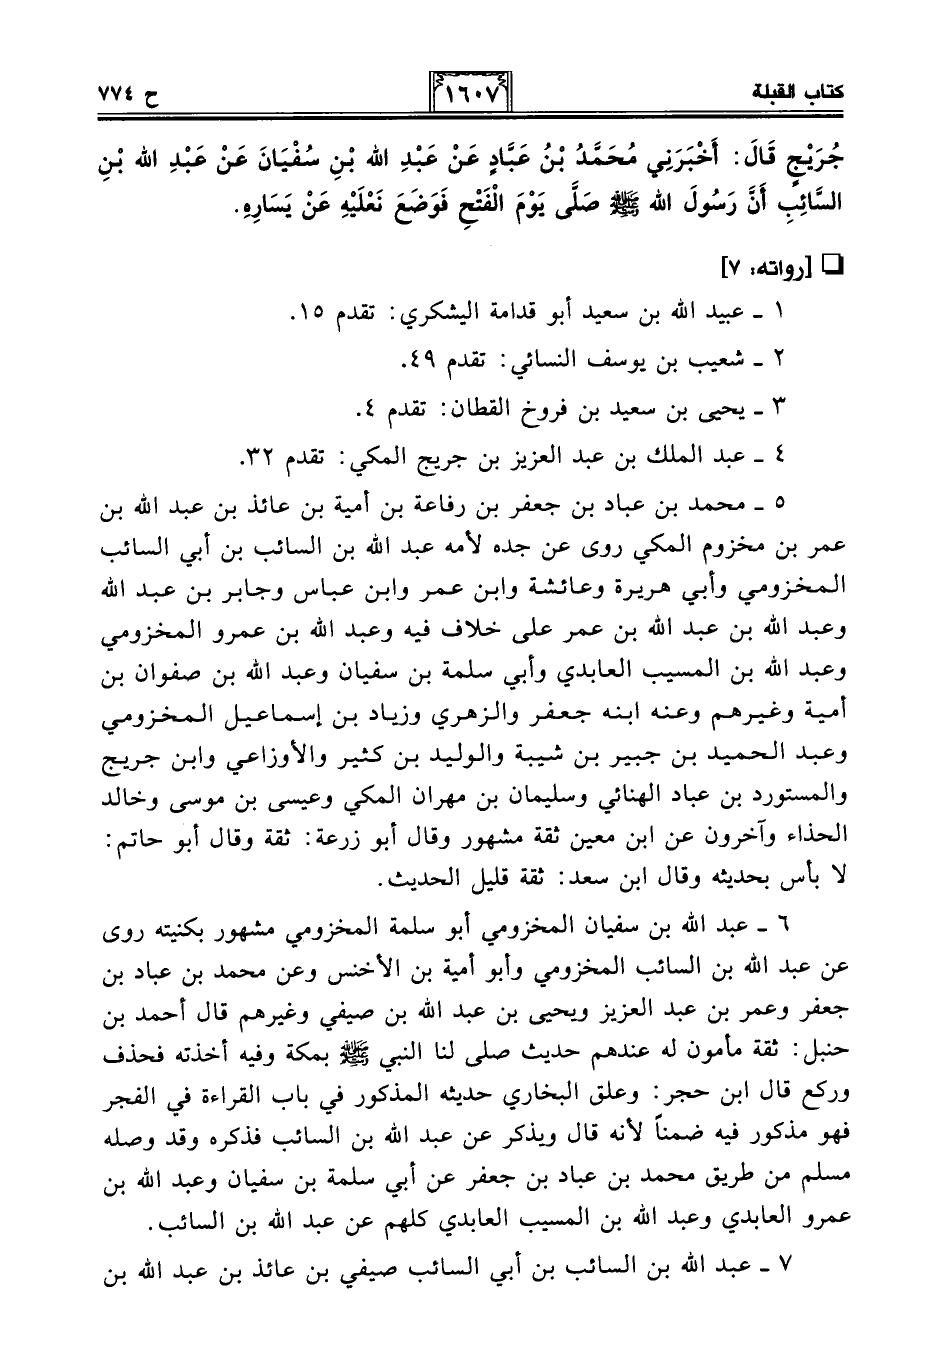 كتاب القبلة ١٦٠٧ ح ٧٧٤
جُرَيْجٍ قَالَ: أَخْبَرَنِي مُحَمَّدُ بْنُ عَبَّادٍ عَنْ عَبْدِ الله بْنِ سُفْيَانَ عَنْ عَبْدِ الله بْنِ
السَّائِبِ أَنَّ رَسُولَ الله ﷺ صَلَّى يَوْمَ الْفَتْحِ فَوَضَعَ نَعْلَيْهِ عَنْ يَسَارِهِ.
❑ [رواته: ٧]
١ ـ عبيد الله بن سعيد أبو قدامة اليشكري: تقدم ١٥.
٢ ـ شعيب بن يوسف النسائي: تقدم ٤٩.
٣ ـ يحيى بن سعيد بن فروخ القطان: تقدم ٤.
٤ ـ عبد الملك بن عبد العزيز بن جريج المكي: تقدم ٣٢.
٥ ـ محمد بن عباد بن جعفر بن رفاعة بن أمية بن عائذ بن عبد الله بن
عمر بن مخزوم المكي روى عن جده لأمه عبد الله بن السائب بن أبي السائب
المخزومي وأبي هريرة وعائشة وابن عمر وابن عباس وجابر بن عبد الله
وعبد الله بن عبد الله بن عمر على خلاف فيه وعبد الله بن عمرو المخزومي
وعبد الله بن المسيب العابدي وأبي سلمة بن سفيان وعبد الله بن صفوان بن
أمية وغيرهم وعنه ابنه جعفر والزهري وزياد بن إسماعيل المخزومي
وعبد الحميد بن جبير بن شيبة والوليد بن كثير والأوزاعي وابن جريج
والمستورد بن عباد الهنائي وسليمان بن مهران المكي وعيسى بن موسى وخالد
الحذاء وآخرون عن ابن معين ثقة مشهور وقال أبو زرعة: ثقة وقال أبو حاتم:
لا بأس بحديثه وقال ابن سعد: ثقة قليل الحديث.
٦ ـ عبد الله بن سفيان المخزومي أبو سلمة المخزومي مشهور بكنيته روى
عن عبد الله بن السائب المخزومي وأبو أمية بن الأخنس وعن محمد بن عباد بن
جعفر وعمر بن عبد العزيز ويحيى بن عبد الله بن صيفي وغيرهم قال أحمد بن
حنبل: ثقة مأمون له عندهم حديث صلى لنا النبي ﷺ بمكة وفيه أخذته فحذف
وركع قال ابن حجر: وعلق البخاري حديثه المذكور في باب القراءة في الفجر
فهو مذكور فيه ضمناً لأنه قال ويذكر عن عبد الله بن السائب فذكره وقد وصله
مسلم من طريق محمد بن عباد بن جعفر عن أبي سلمة بن سفيان وعبد الله بن
عمرو العابدي وعبد الله بن المسيب العابدي كلهم عن عبد الله بن السائب.
٧ ـ عبد الله بن السائب بن أبي السائب صيفي بن عائذ بن عبد الله بن